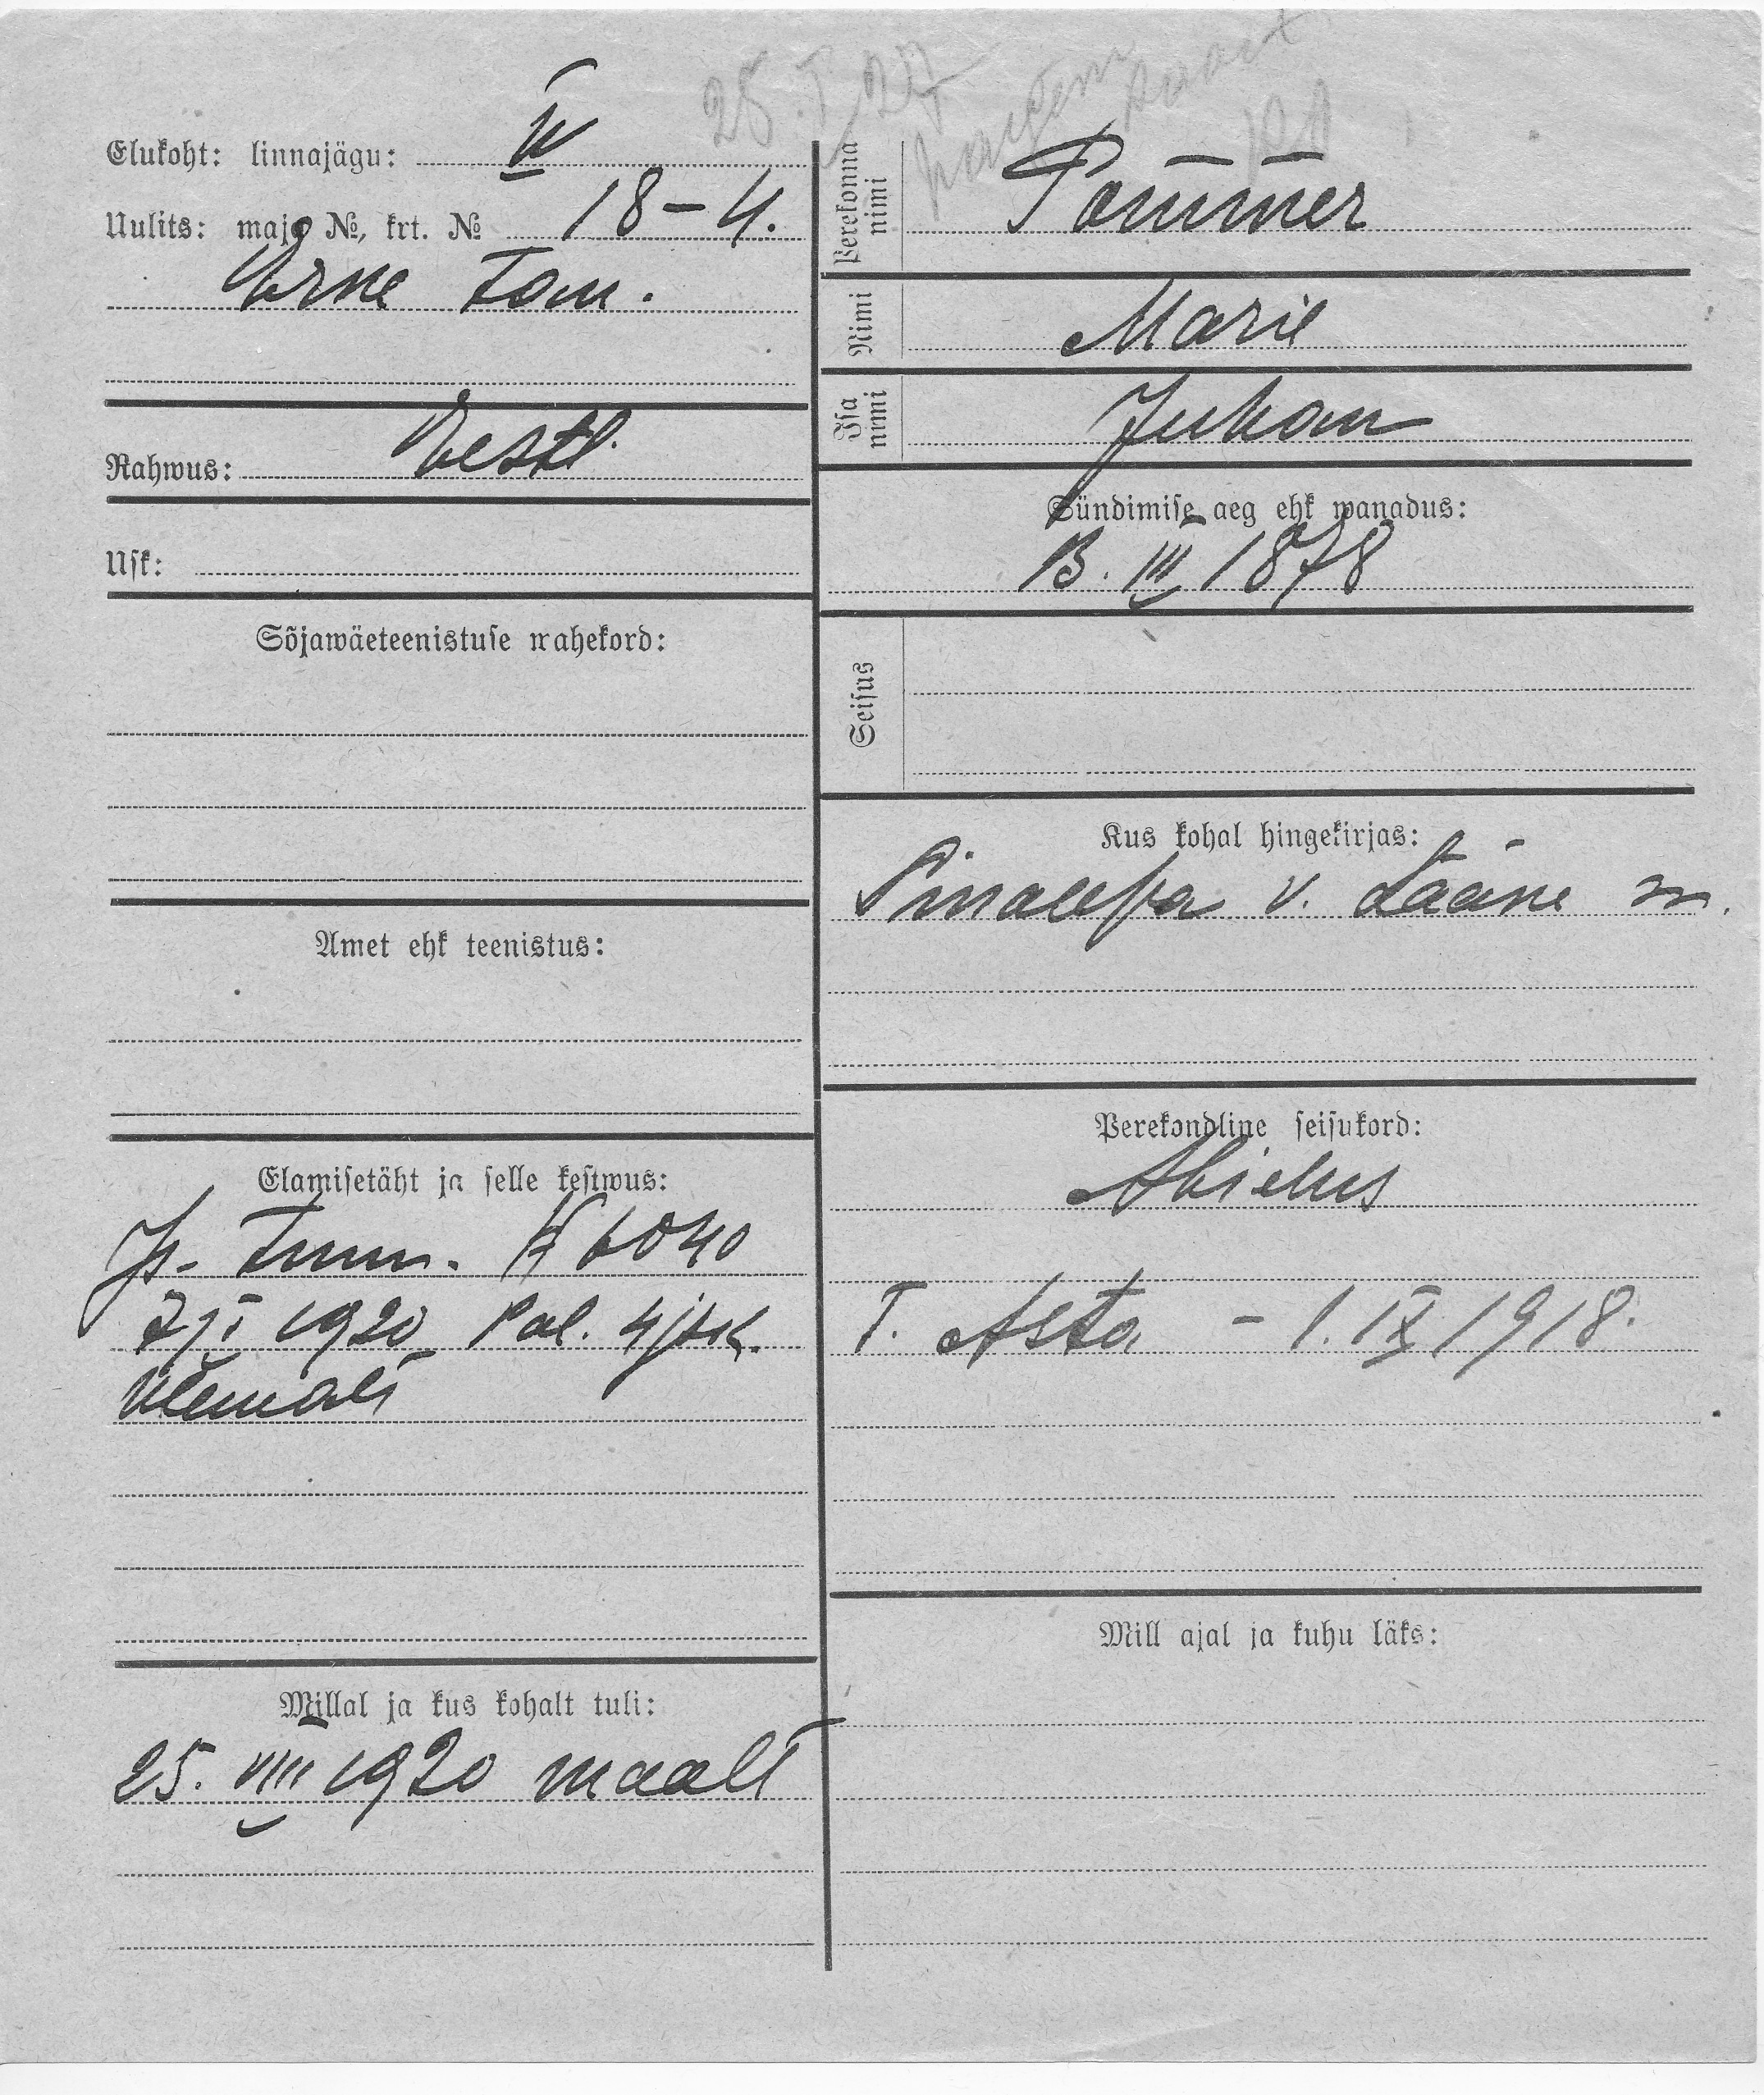 25. I 27
Elukoht: linnajägu: IV
Uulits: maja №, krt. № 18-4.
Erne tän.
Rahwus: Eestl.
Usk:
Sõjawäeteenistuse wahekord:
Amet ehk teenistus:
Elamisetäht ja selle kestwus:
Is. tunn. № 6040
1920 Pol. 4 jsk.
ülemalt
Millal ja kus kohalt tuli:
25. VIII 1920 maalt
Perekonna nimi Pommer
Nimi Marie
Isa nimi Juhan
Sündimise aeg ehk wanadus:
13. III 1878
Seisus
Kus kohal hingekirjas:
Sinalepa v. Lääne m.
Perekondline seisukord:
Abielus
T. Asta - 1. IX 1918.
Mill ajal ja kuhu läks: